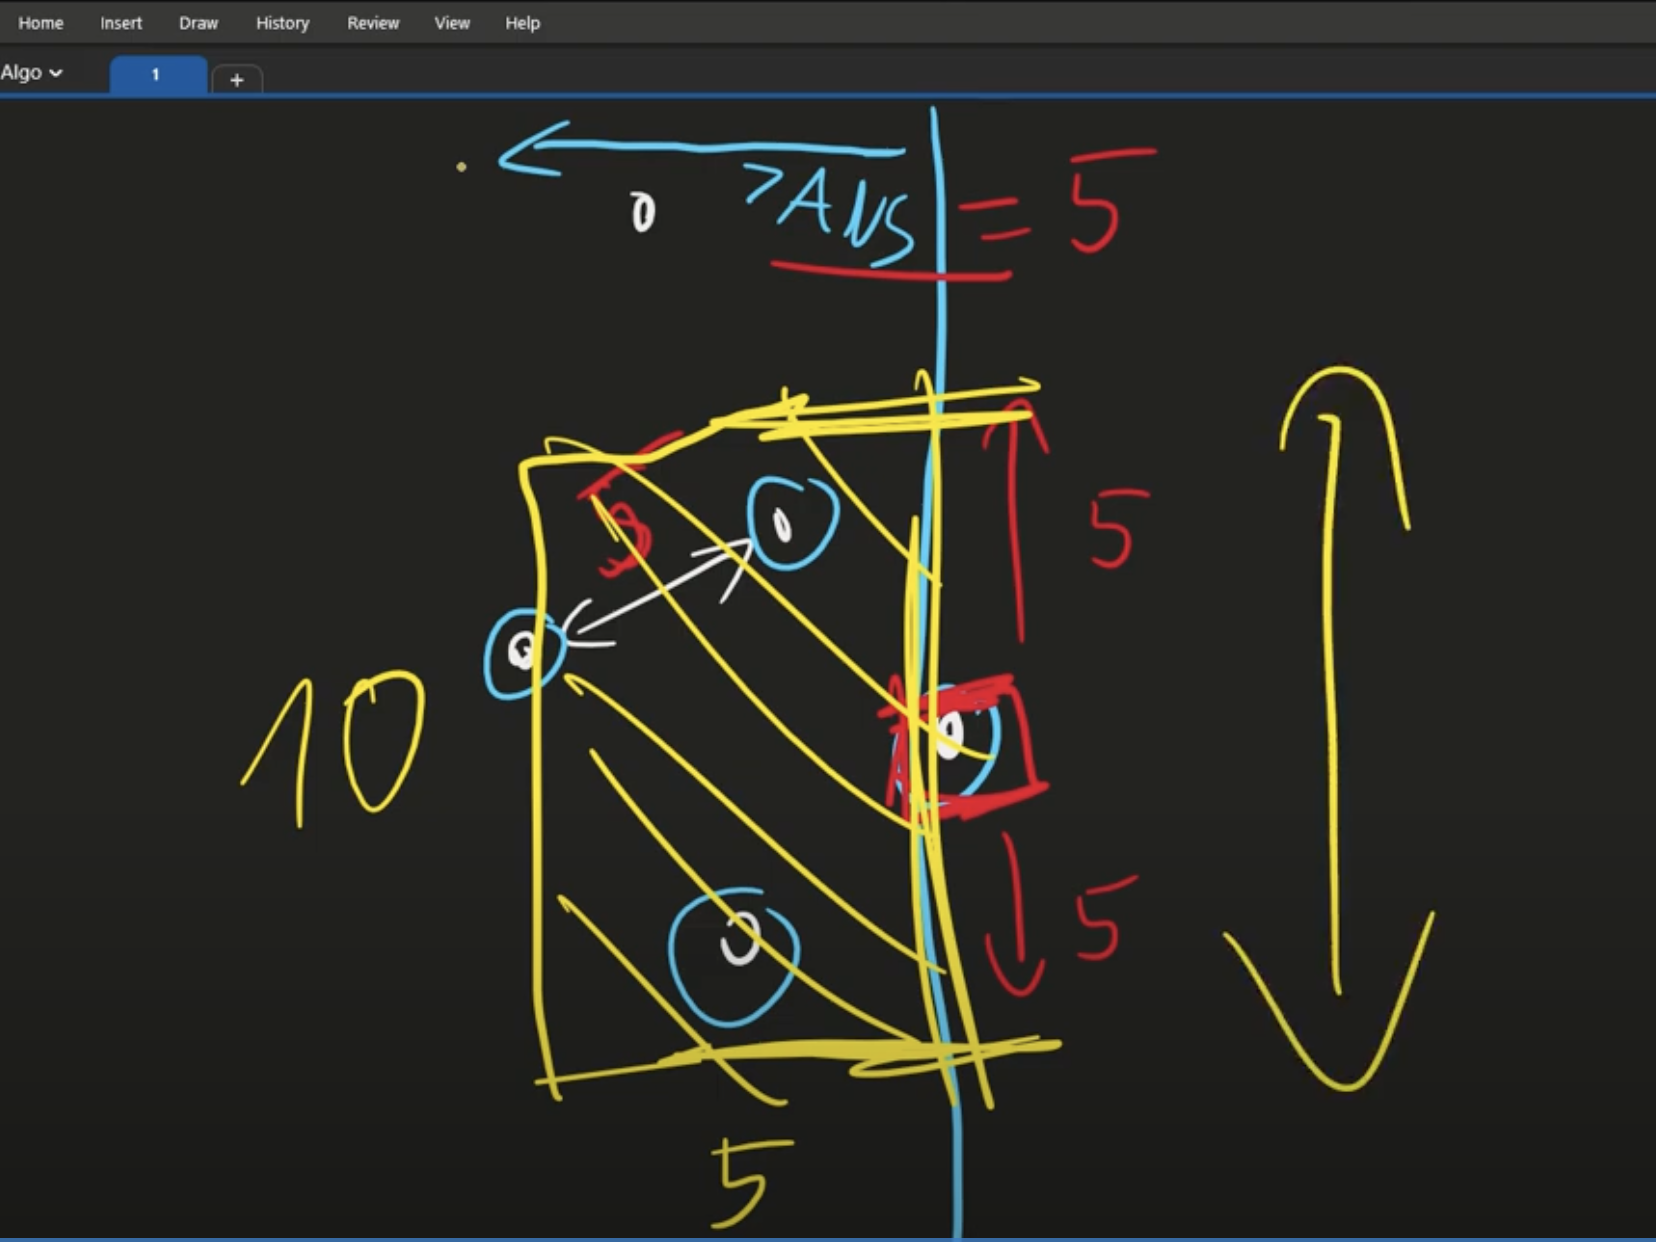 Home Insert Draw History Review View Help
Algo 1 +
0 >ANS = 5
5
10
5
5